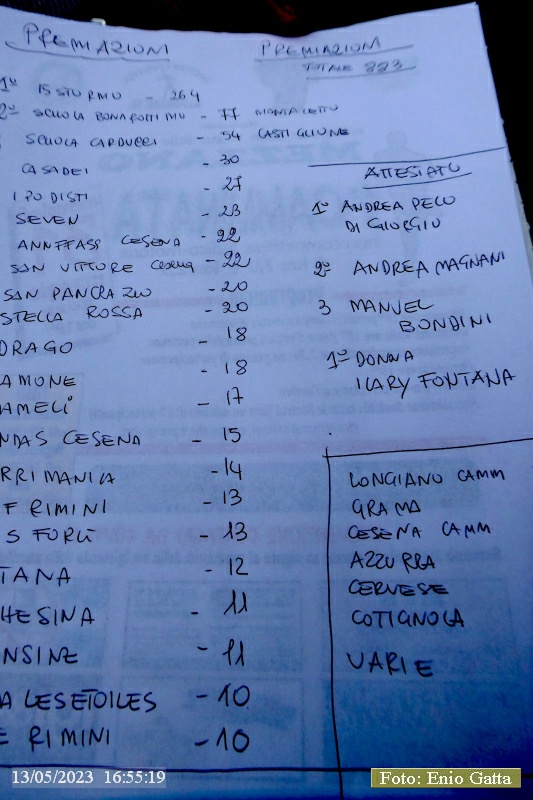 PREMIAZIONI
1º 15 STURMO - 264
2º SCUOLA BONAROTTI MO - 77 MONTALETTO
SCUOLA CARDUCCI - 54 CASTIGLIONE
CASADEI - 30
IPODISTI - 27
SEVEN - 23
ANNFFASS CESENA - 22
SAN VITTORE CESENA - 22
SAN PANCRAZIO - 20
STELLA ROSSA - 20
DRAGO - 18
AMONE - 18
AMELI - 17
NDAS CESENA - 15
RRIMANIA - 14
F RIMINI - 13
S FORLI - 13
TANA - 12
HESINA - 11
NSINE - 11
A LESETOILES - 10
E RIMINI - 10
PREMIAZIONI
TOTALE 883
ATTESTATO
1º ANDREA PECO
DI GIORGIO
2º ANDREA MAGNANI
3 MANUEL
BONDINI
1º DONNA
ILARY FONTANA
LONGIANO CAMM
GRAMA
CESENA CAMM
AZZURRA
CERVESE
COTIGNOLA
VARIE
13/05/2023 16:55:19
Foto: Enio Gatta